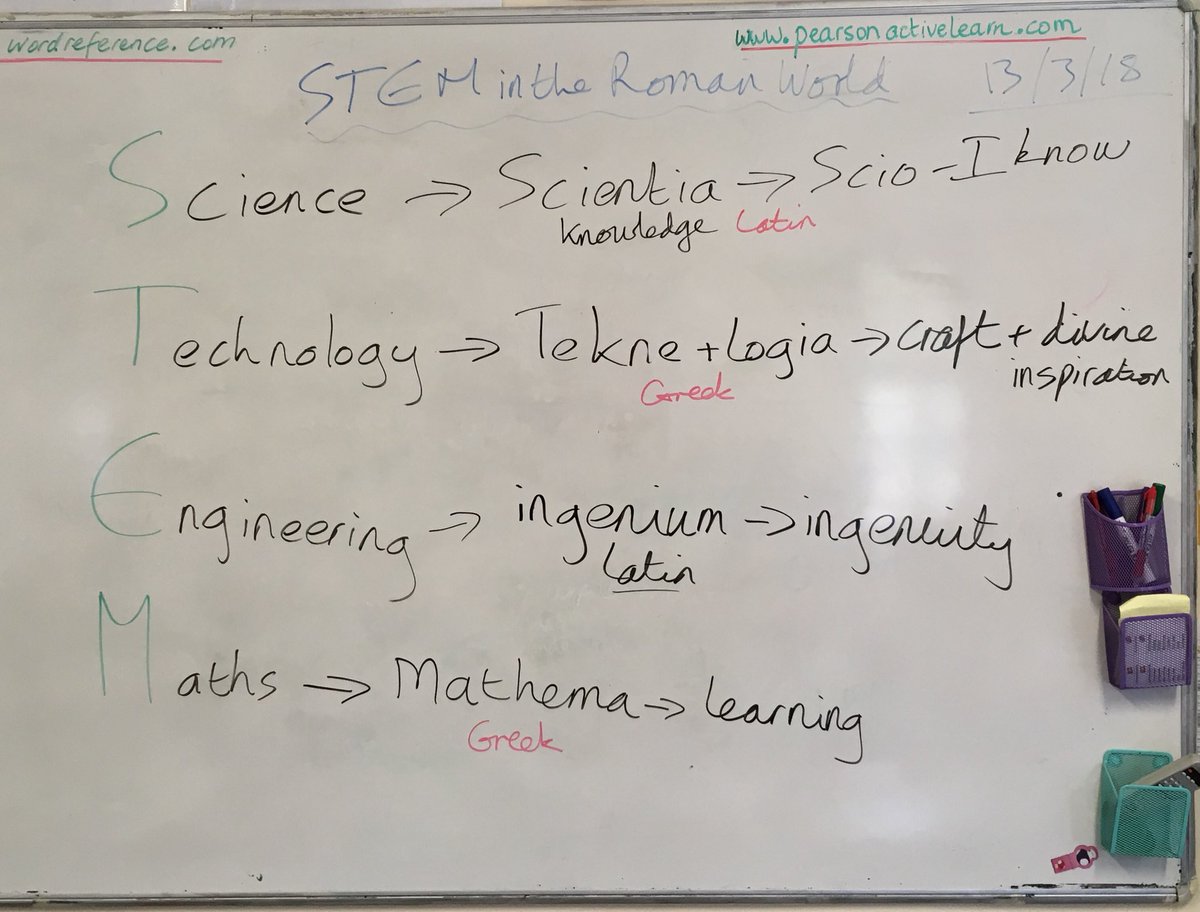 wordreference.com
www.pearsonactivelearn.com
STEM in the Roman World 13/3/18
Science → Scientia → Scio - I know
knowledge Latin
Technology → Tekne + logia → craft + divine
Greek inspiration
Engineering → ingenium → ingenuity
Latin
Maths → Mathema → learning
Greek